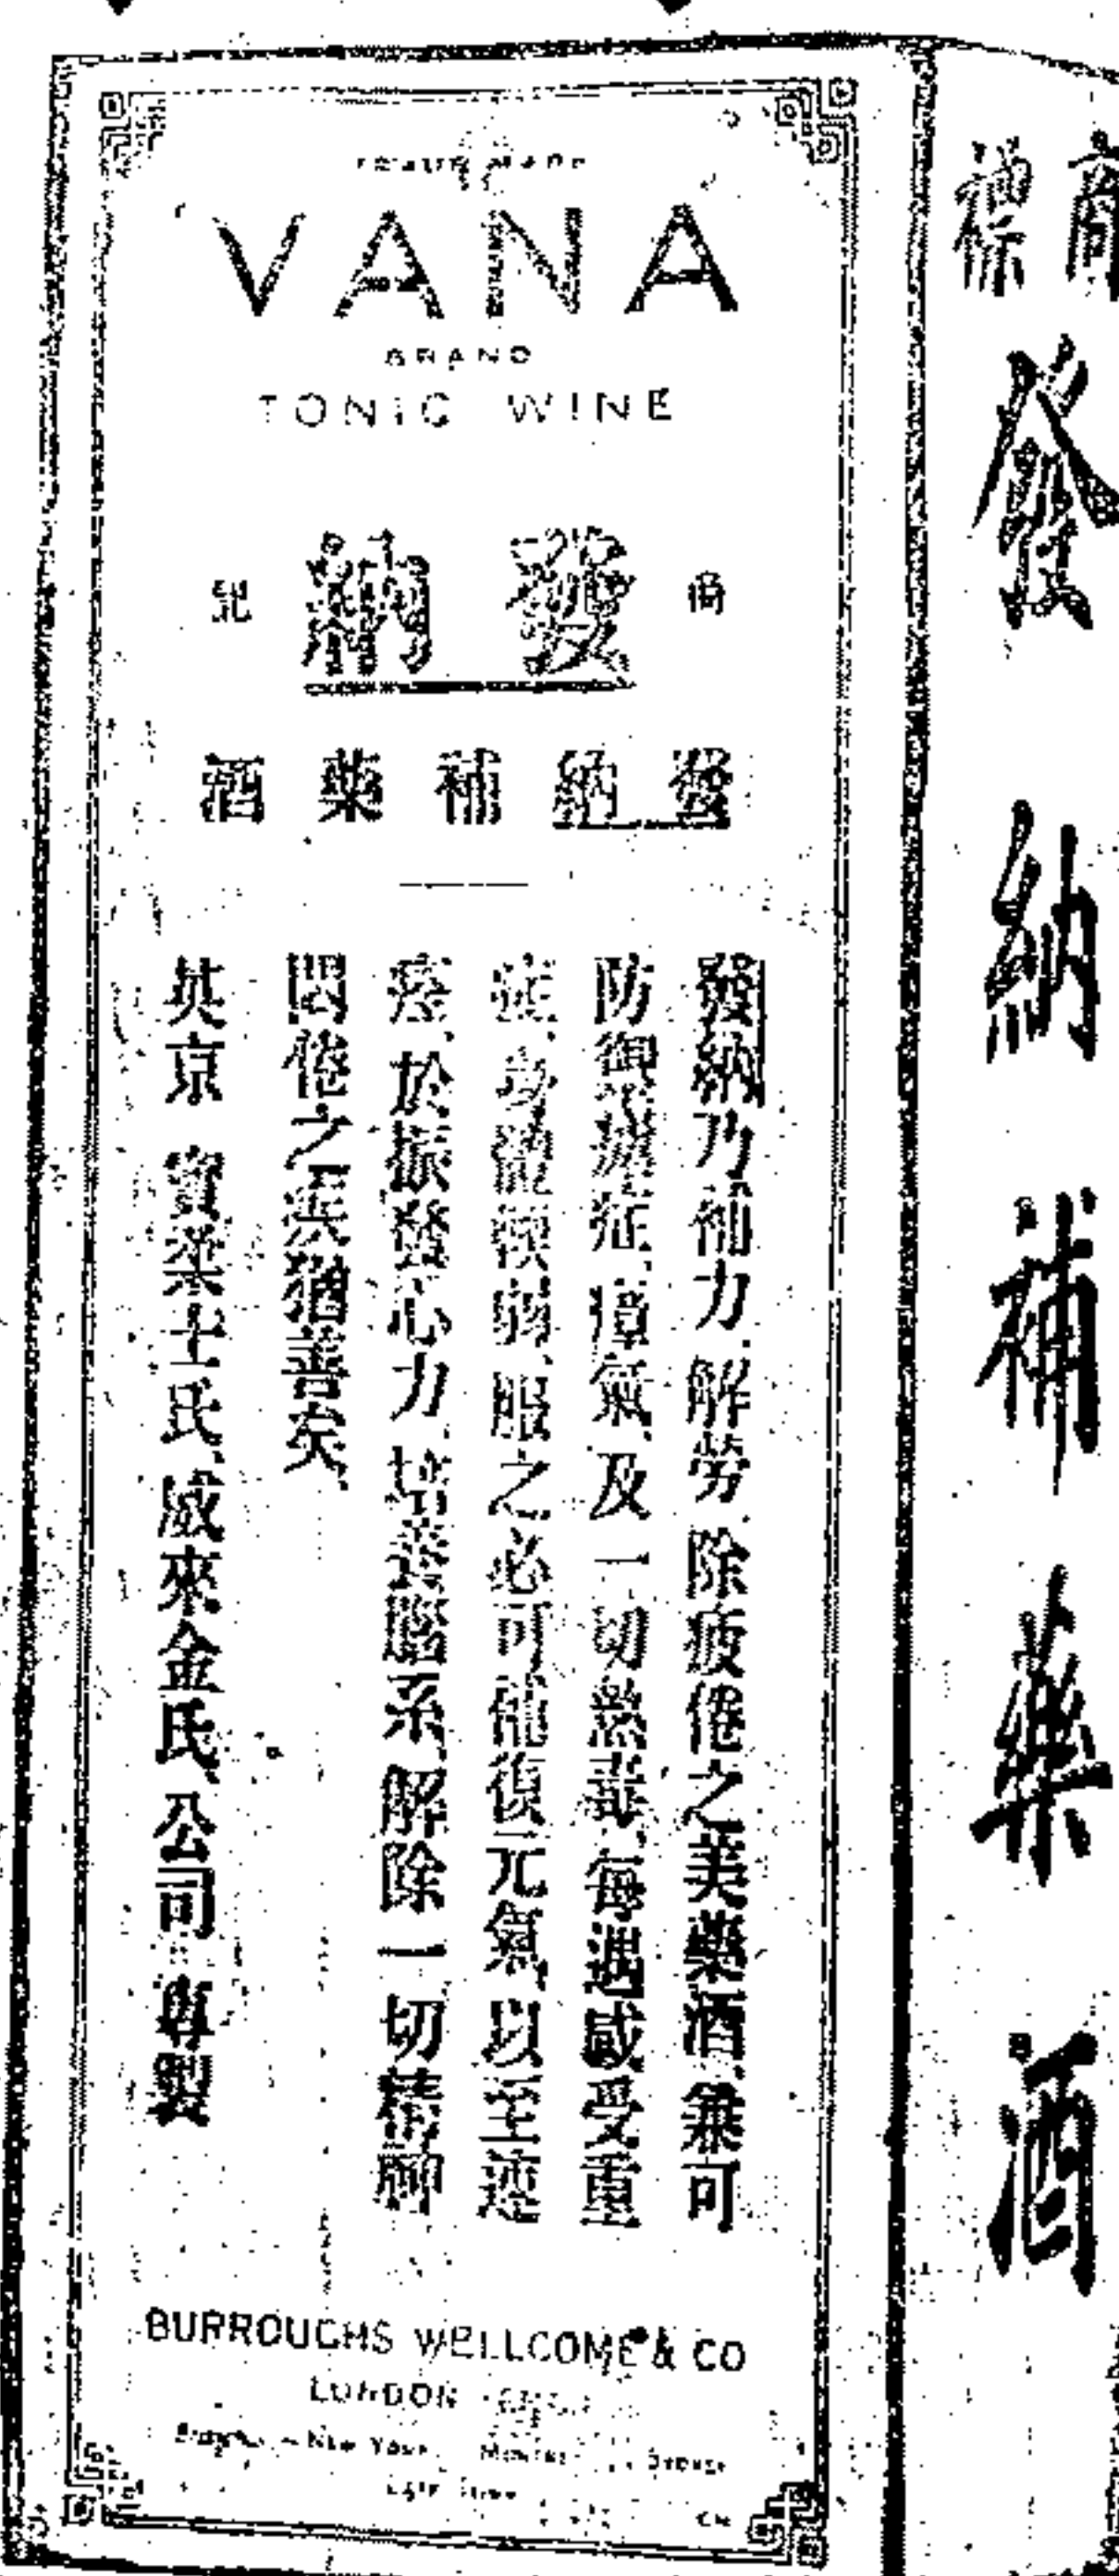 TRADE MARK
VANA
BRAND
TONIC WINE
商 發納 記
發納補藥酒
發納乃補力、解勞、除疲倦之美藥酒、兼可
防禦瘧症、瘴氣、及一切熱毒、每遇感受重
症、身體軟弱、服之必可能復元氣、以至速
痊、於振發心力、培養腦系、解除一切精神
悶倦之患、猶善矣、
英京 寶來士氏、威來金氏、公司 專製
BURROUGHS WELLCOME & CO
LONDON
NEW YORK
SYDNEY
CAPE TOWN
商標
發納補藥酒